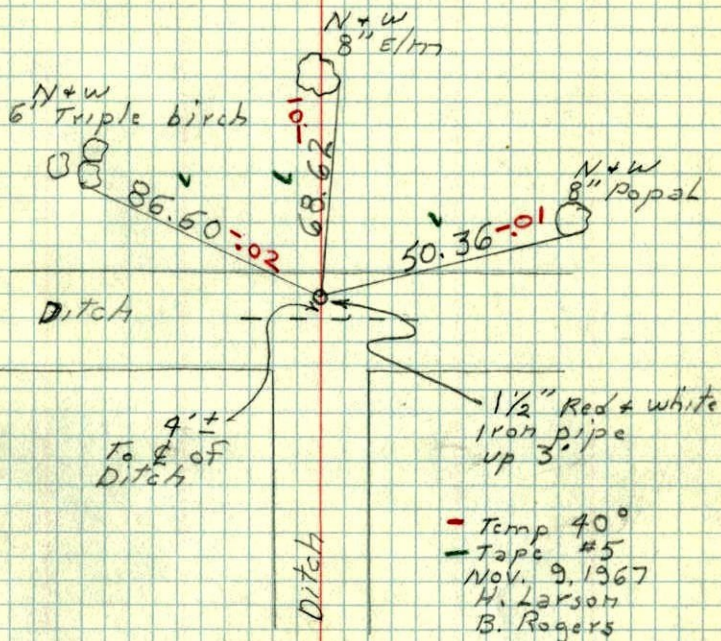 N & W
8" Elm
N & W
6" Triple birch
N & W
8" Popal
68.62 -.01
86.60 -.02
50.36 -.01
Ditch
4' ±
To ℄ of
Ditch
1 1/2" Red & white
Iron pipe
up 3'
Ditch
- Temp 40°
- Tape #5
Nov. 9, 1967
H. Larson
B. Rogers